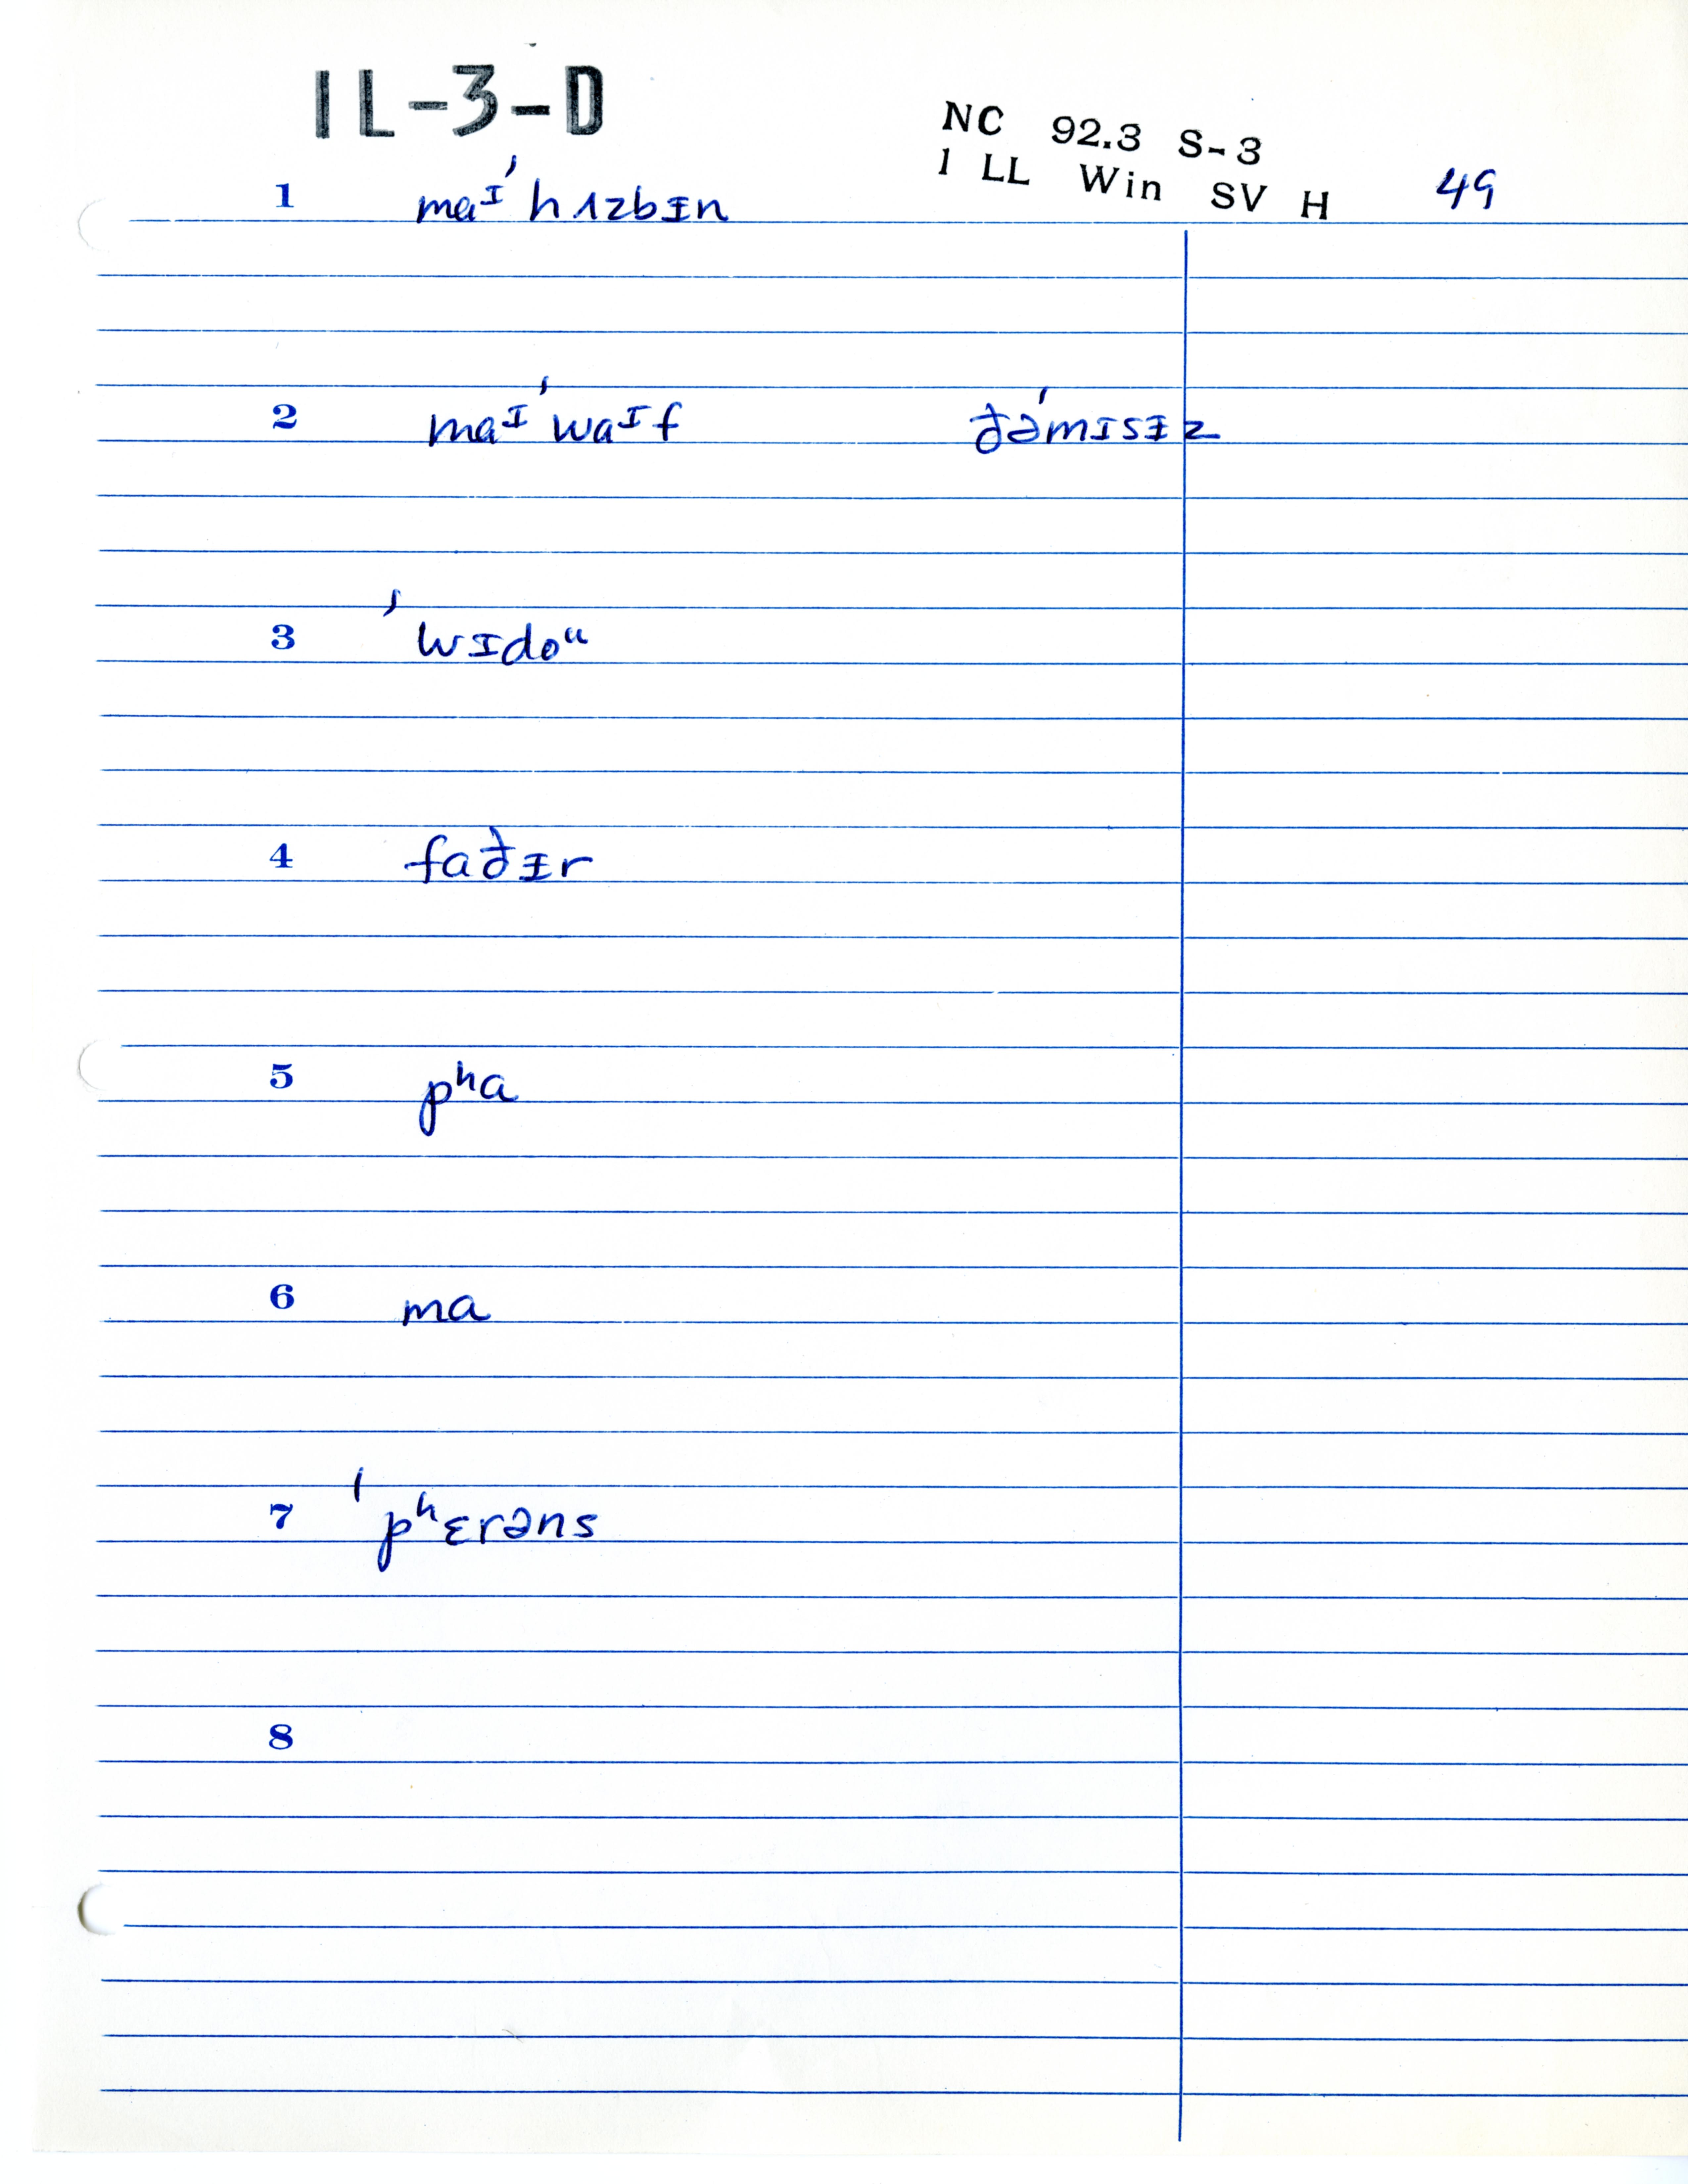 IL-3-D
NC 92.3 S-3
1 LL Win SV H 49
1 maᴵˈhʌzbᵻn
2 maᴵˈwaᴵf ðəˈmɪsᵻz
3 ˈwᵻdoᵘ
4 faðᵻr
5 pʰa
6 ma
7 ˈpʰɛrəns
8